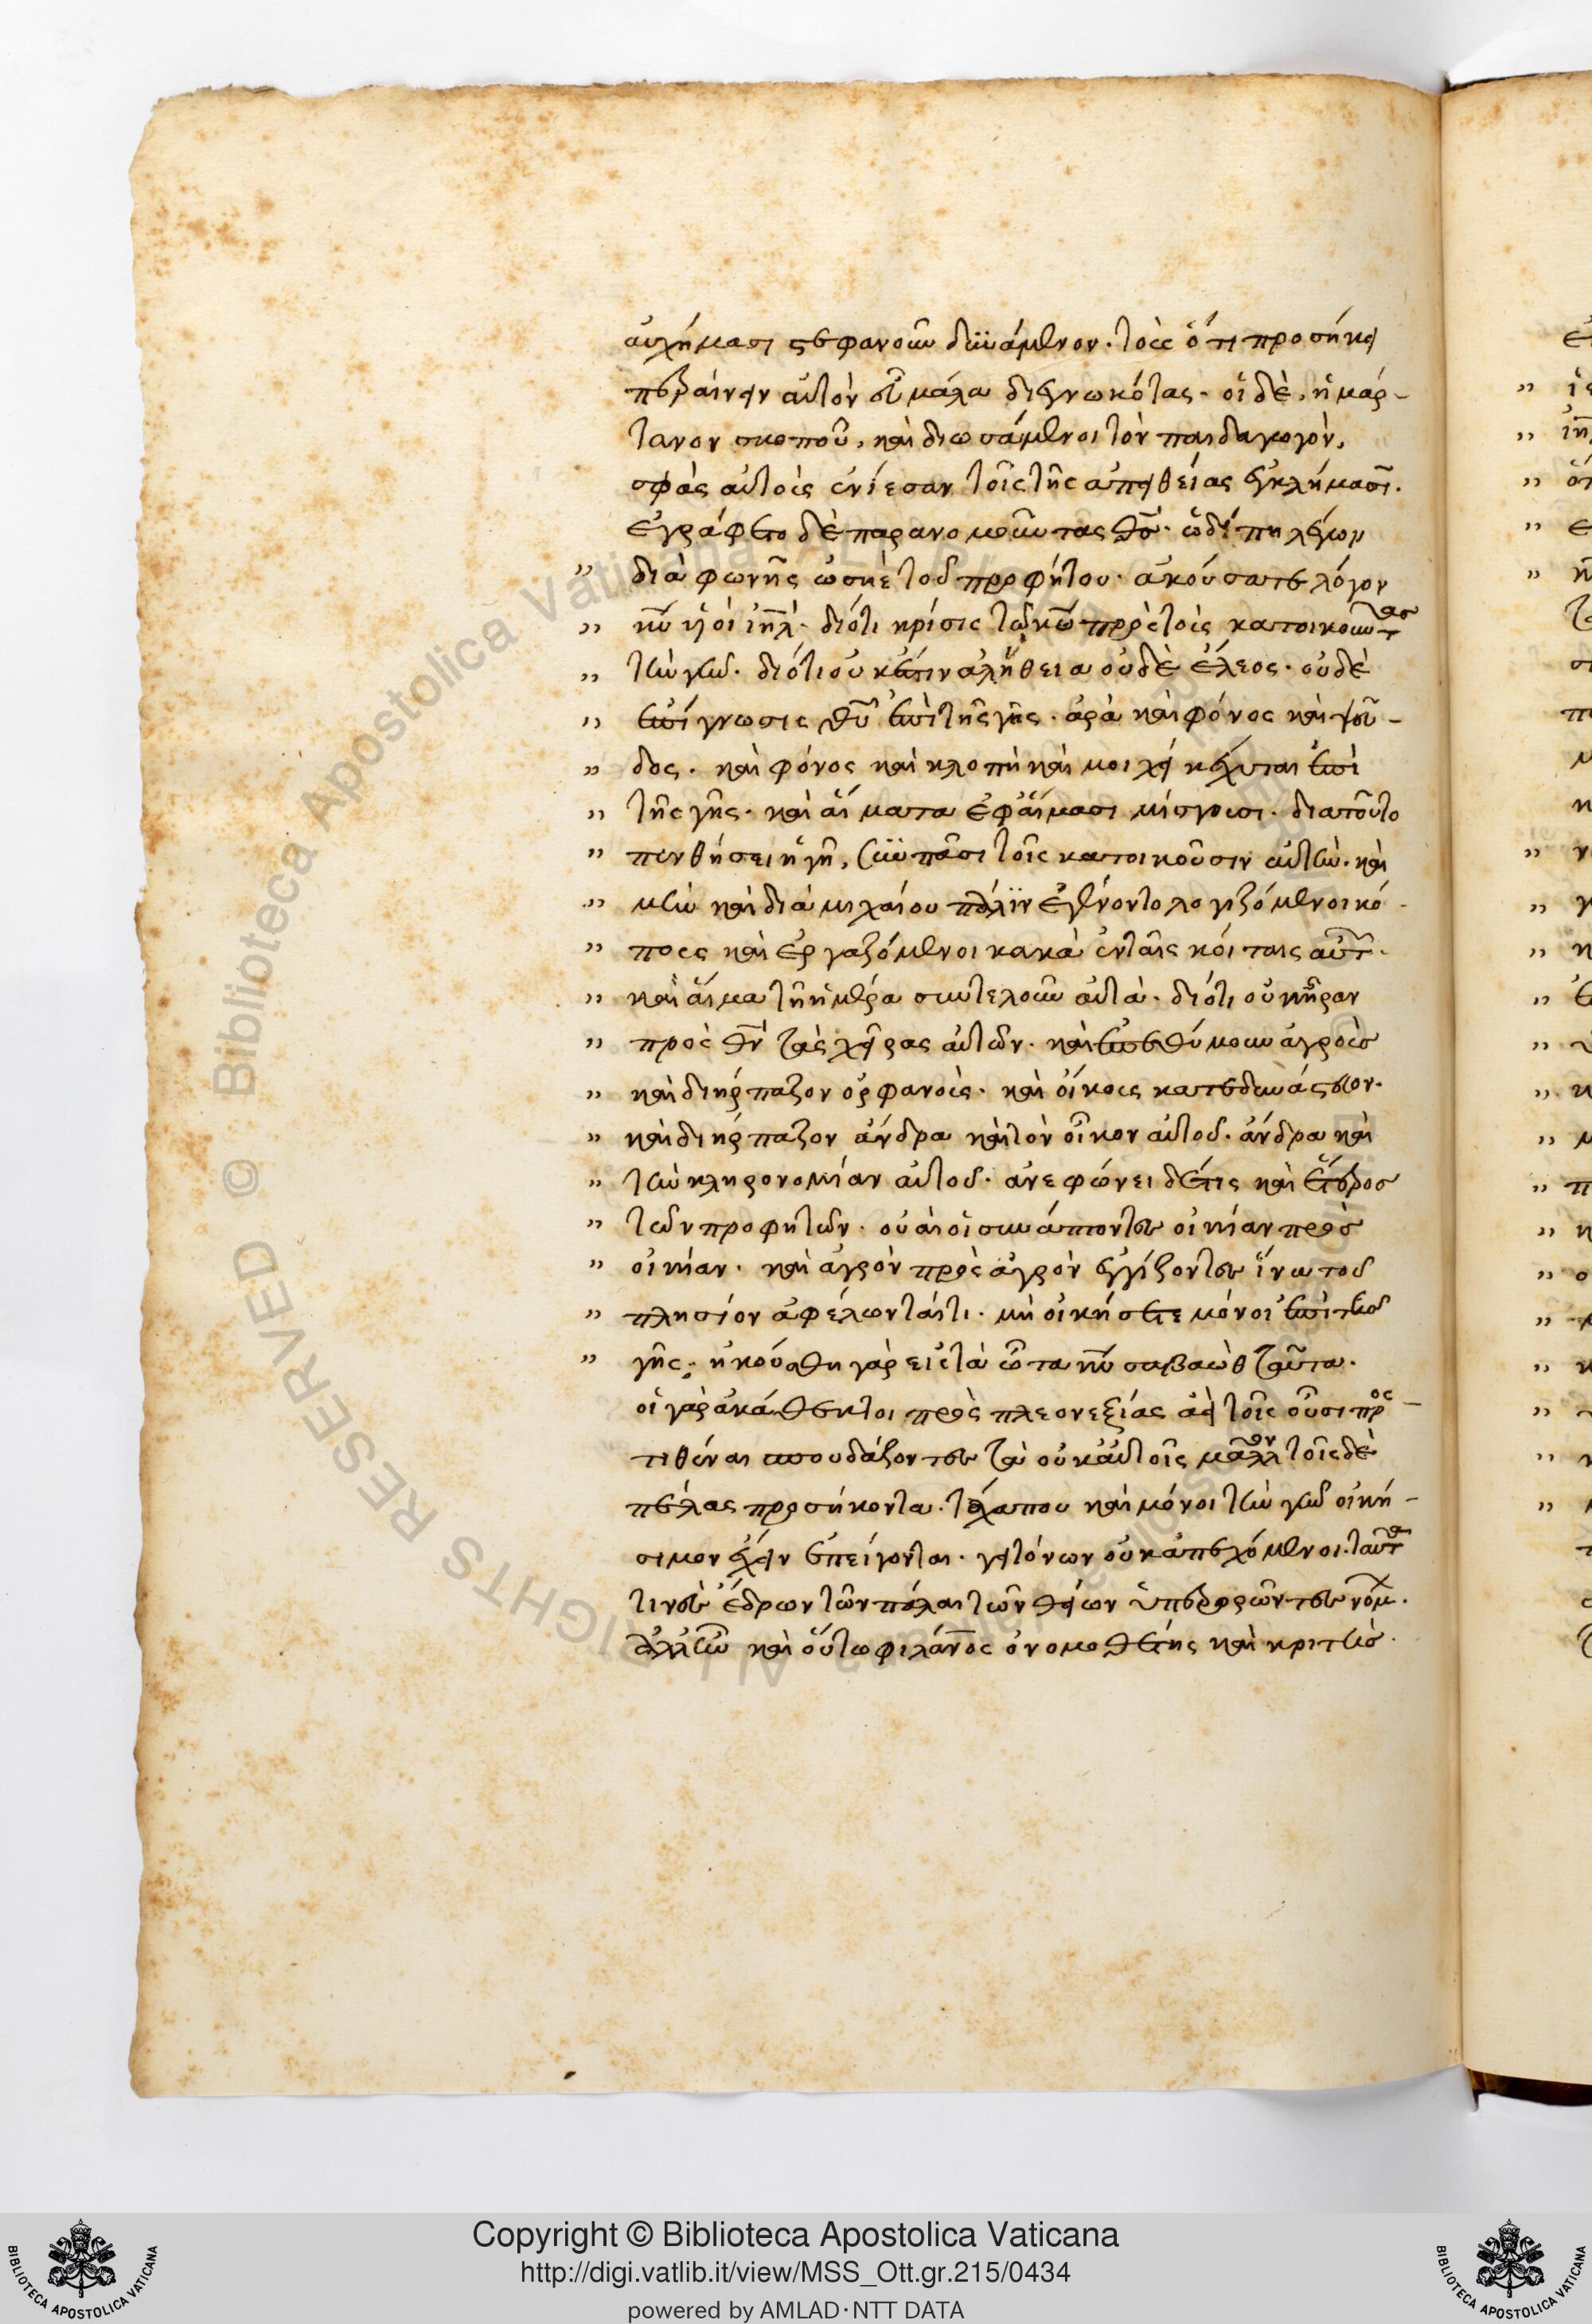 αὐχήμασι στεφανοῦν δυνάμενον. τοὺς ὅτι προσήκει
περαίνειν αὐτὸν εὖ μάλα διεγνωκότας. οἱ δὲ, ἡμάρ-
τανον σκοποῦ, καὶ διωσάμενοι τὸν παιδαγωγὸν,
σφὰς αὐτοὺς ἐνίεσαν τοῖς τῆς ἀπειθείας ἐγκλήμασι.
ἐγράφετο δὲ παρανομοῦντας θς. ὡδί πη λέγων
διὰ φωνῆς ὡσηὲ τοῦ προφήτου. ἀκούσατε λόγον
κυ υἱοὶ ιηλ. διότι κρίσις τῶ κω πρὸς τοὺς κατοικοῦντας
τὴν γῆν. διότι οὐκ ἔστιν ἀλήθεια οὐδὲ ἔλεος. οὐδὲ
ἐπίγνωσις θυ ἐπὶ τῆς γῆς. ἀρὰ καὶ φόνος καὶ ψεῦ-
δος. καὶ φόνος καὶ κλοπὴ καὶ μοιχεία κέχυται ἐπὶ
τῆς γῆς. καὶ αἵματα ἐφ αἵμασι μίσγουσι. διατοῦτο
πενθήσει ἡ γῆ, σὺν πᾶσι τοῖς κατοικοῦσιν αὐτὴν. καὶ
μὴν καὶ διὰ μιχαίου πάλιν ἐγένοντο λογιζόμενοι κό
πους καὶ ἐργαζόμενοι κακὰ ἐν ταῖς κοίταις αὐτῶν.
καὶ ἅμα τῆ ἡμέρα συνετέλουν αὐτὰ. διότι οὐκ ἦραν
πρὸς θν τὰς χεῖρας αὐτῶν. καὶ ἐπεθύμουν ἀγροὺς
καὶ διήρπαζον ὀρφανοὺς. καὶ οἴκους κατεδυνάστευον.
καὶ διήρπαζον ἄνδρα καὶ τὸν οἶκον αὐτοῦ. ἄνδρα καὶ
τὴν κληρονομίαν αὐτοῦ. ἀνεφώνει δέ τις καὶ ἕτερος
τῶν προφητῶν. οὐαὶ οἱ συνάπτοντες οἰκίαν πρὸς
οἰκίαν. καὶ ἀγρὸν πρὸς ἀγρὸν ἐγγίζοντες ἵνα τοῦ
πλησίον ἀφέλωνταί τι. μὴ οἰκήσετε μόνοι ἐπὶ τῆς
γῆς. ἠκούσθη γὰρ εἰς τὰ ὦτα κυ σαβαὼθ ταῦτα.
οἱ γὰρ ἀκάθεκτοι πρὸς πλεονεξίας ἀεὶ τοῖς οὖσι προσ-
τιθέναι σπουδάζοντες τὰ οὐκ αὐτοῖς μᾶλλον τοῖς δὲ
πέλας προσήκοντα. τάχα που καὶ μόνοι τὴν γῆν οἰκή-
σιμον ἔχειν ἐπείγονται. γειτόνων οὐκ ἀπεχόμενοι. ταῦτά
τινες ἔδρων τῶν πάλαι τῶν θείων ὑπερορῶντες νόμων.
ἀλλ ἦν καὶ οὕτω φιλανος ὁ νομοθέτης καὶ κριτὴς.
Copyright © Biblioteca Apostolica Vaticana
http://digi.vatlib.it/view/MSS_Ott.gr.215/0434
powered by AMLAD·NTT DATA